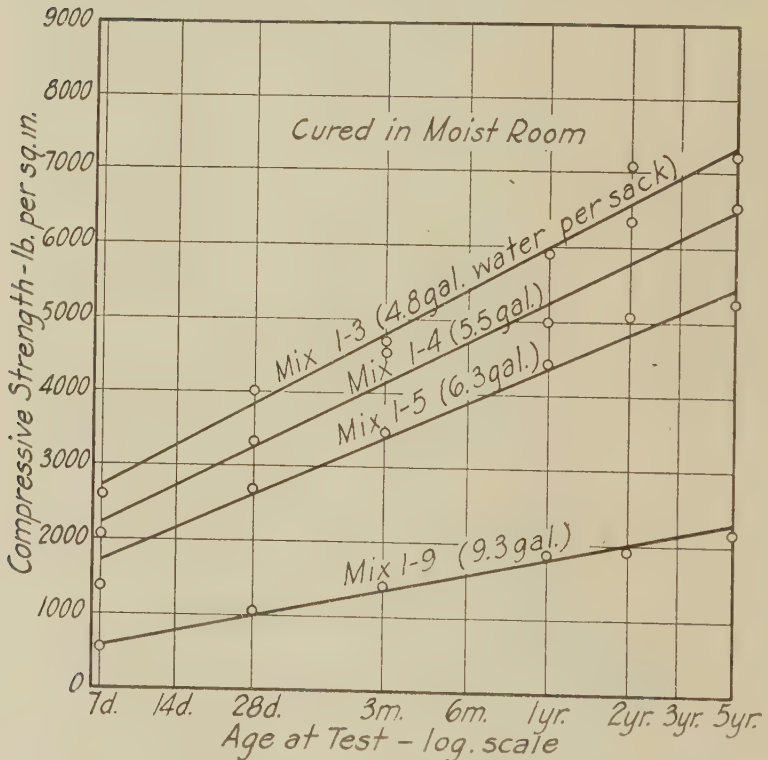 9000
8000
7000
6000
5000
4000
3000
2000
1000
0
Compressive Strength-lb. per sq.in.
Cured in Moist Room
Mix 1-3 (4.8gal. water per sack)
Mix 1-4 (5.5gal.)
Mix 1-5 (6.3gal.)
Mix 1-9 (9.3gal.)
7d. 14d. 28d. 3m. 6m. 1yr. 2yr. 3yr. 5yr.
Age at Test - log. scale